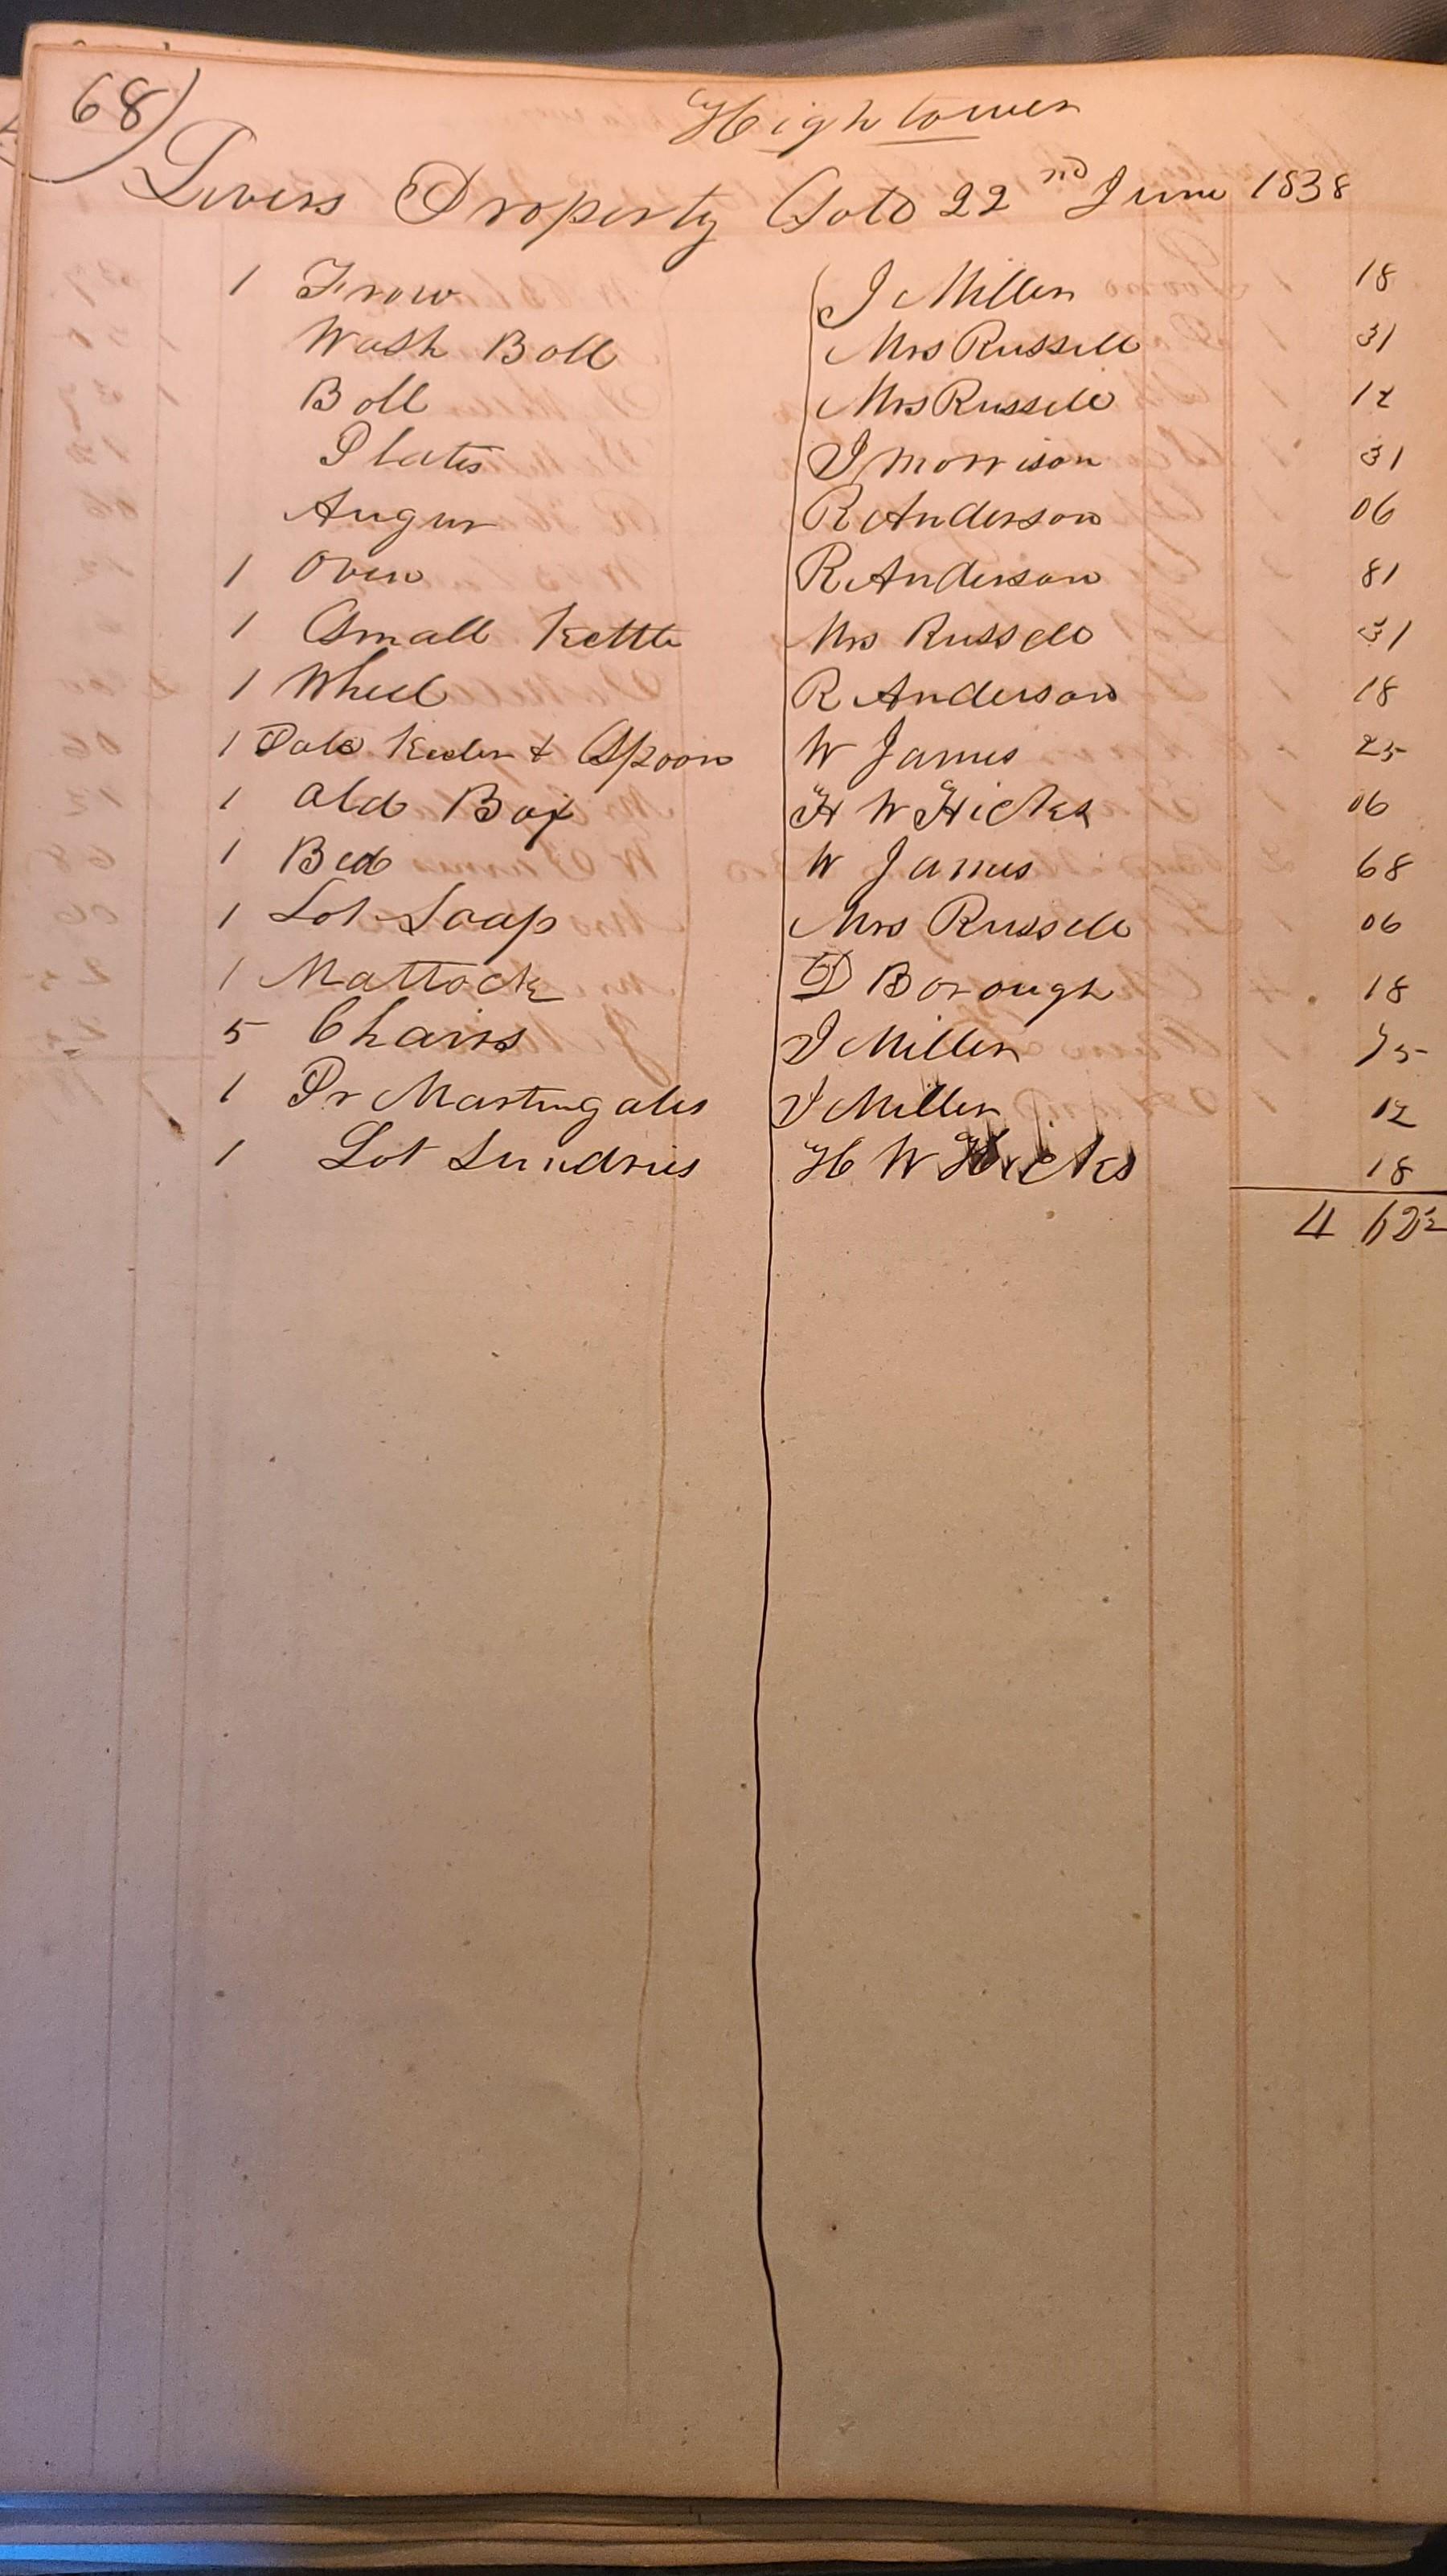 68)
Hightower
Divers Property Sold 22nd June 1838
1 Frow J Miller 18
Wash Boll Mrs Russell 31
Boll Mrs Russell 12
Plates J Morrison 31
Augur R Anderson 06
1 Oven R Anderson 81
1 Small Kettle Mrs Russell 31
1 Wheel R Anderson 18
1 & Spoon W James 25
1 Old Box H W Hicks 06
1 Bed W James 68
1 Lot Soap Mrs Russell 06
1 Mattock D Borough 18
5 Chairs J Miller 75
1 Pr Martingales J Miller 12
1 Lot Sundries H W Hicks 18
4 62½